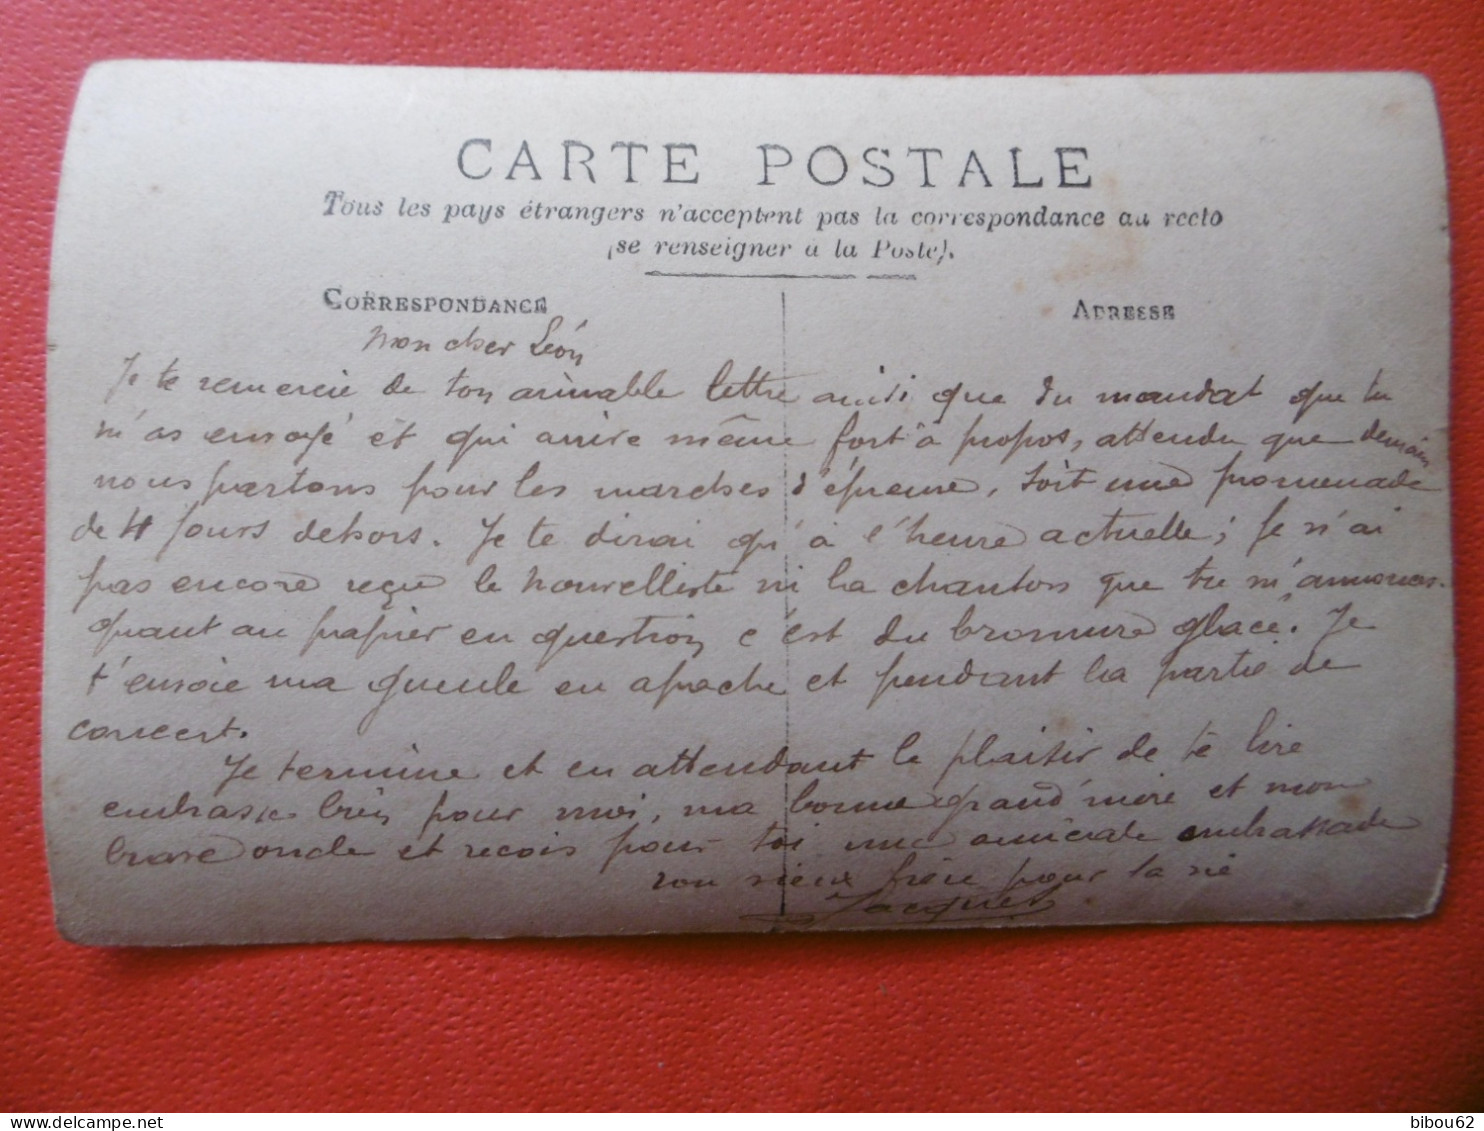 CARTE POSTALE
Tous les pays étrangers n'acceptent pas la correspondance au recto
(se renseigner à la Poste).
CORRESPONDANCE
ADRESSE
Mon cher Léon
Je te remercie de ton aimable lettre ainsi que du mandat que tu
m'as envoyé et qui arrive même fort à propos, attendu que demain
nous partons pour les marches d'épreuve, soit une promenade
de 4 jours dehors. Je te dirai qu'à l'heure actuelle; je n'ai
pas encore reçu le nouvelliste ni la chanson que tu m'annonces.
quant au papier en question c'est du bromure glacé. Je
t'envoie ma gueule en apache et pendant la partie de
concert.
Je termine et en attendant le plaisir de te lire
embrasse bien pour moi, ma bonne grand'mère et mon
brave oncle et reçois pour toi une amicale embrassade
ton vieux frère pour la vie
Jacques
bibou62